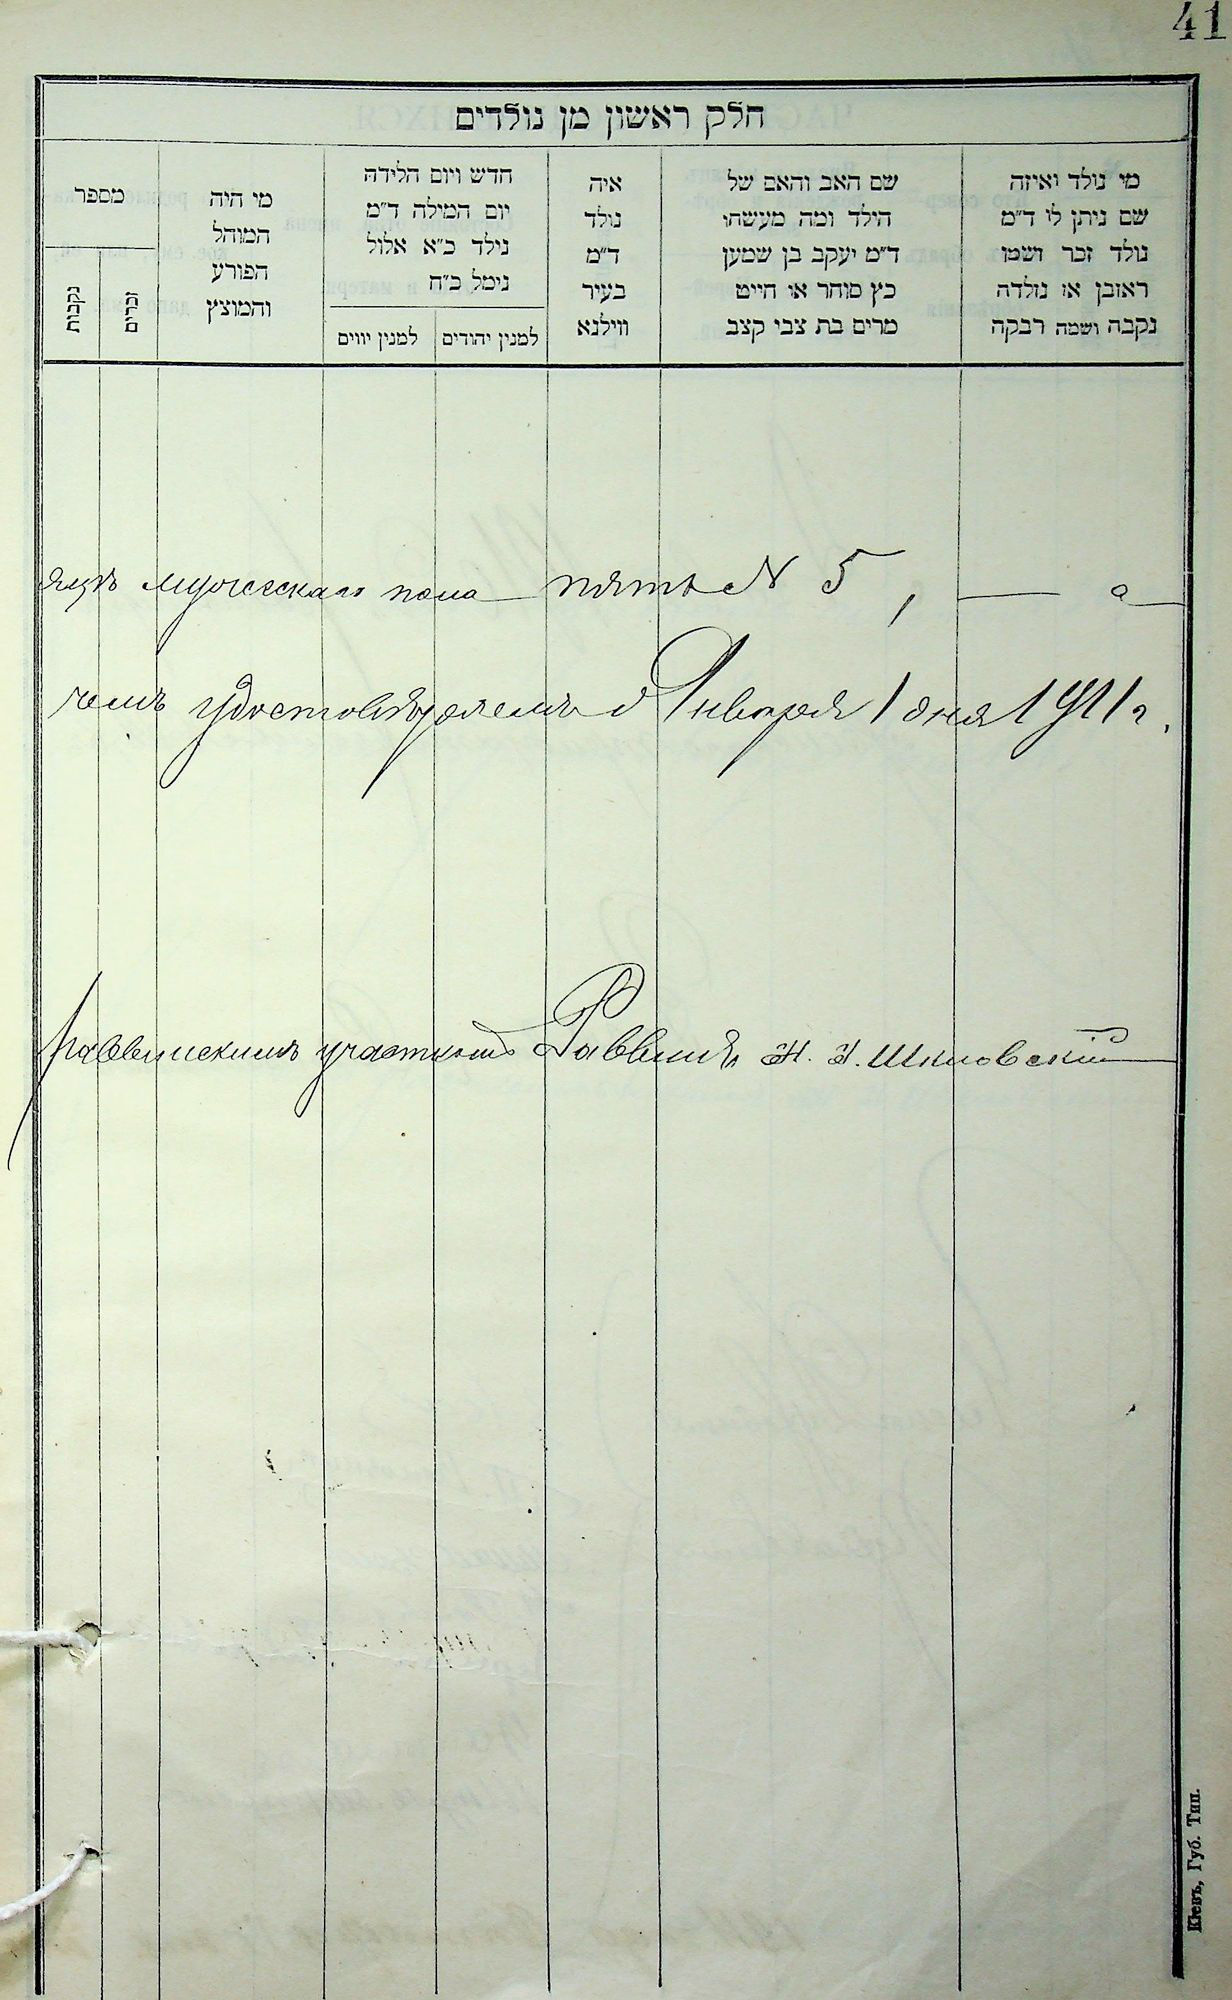 41
חלק ראשון מן נולדים
מי נולד ואיזה
שם ניתן לו ד״מ
נולד זכר ושמו
ראובן או נולדה
נקבה ושמה רבקה
שם האב והאם של
הילד ומה מעשהו
ד״מ יעקב בן שמעון
כץ סוחר או חייט
מרים בת צבי קצב
איה
נולד
ד״מ
בעיר
ווילנא
חדש ויום הלידה
יום המילה ד״מ
נילד כ״א אלול
נימל כ״ח
למנין יהודים
למנין יווים
מי היה
המוהל
הפורע
והמוצץ
מספר
זכרים
נקבות
мужескаго пола пять N 5, — а
чемъ удостовѣряемъ Января 1 дня 1911 г.
раввинскимъ участкомъ Раввинъ Шкловскій
Кіевъ, Губ. Тип.